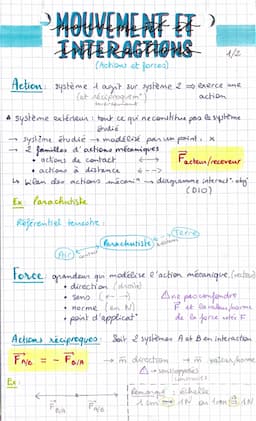 MOUVEMENT ET
INTERACTIONS
(Actions et forces)
1/2
Action: système 1 agit sur système 2 ⇒ exerce une
(et réciproquem^t)
action
* système extérieur : tout ce qui ne constitue pas le système
étudié
→ système étudié → modélisé par un point, x
→ 2 familles d'actions mécaniques
• actions de contact ←→
• actions à distance ←-->
F acteur/receveur
↳ bilan des actions mécani^q → diagramme interact° objet
(DIO)
Ex: Parachutiste
Référentiel terrestre :
Air
Parachutiste
Terre
Force: grandeur qui modélise l'action mécanique
• direction (droite)
• sens (← →)
• norme (en N)
• point d'applicat°
⚠ ne pas confondre
F et la valeur/norme
de la force notée F
Actions réciproques: Soit 2 systèmes A et B en interaction
F A/B = - F B/A
→ m̂ direction → m̂ valeur/norme
⚠ → sens opposés
Ex:
F B/A
F A/B
Remarque : échelle
1 cm → 1N ou 1 cm ≙ 1N